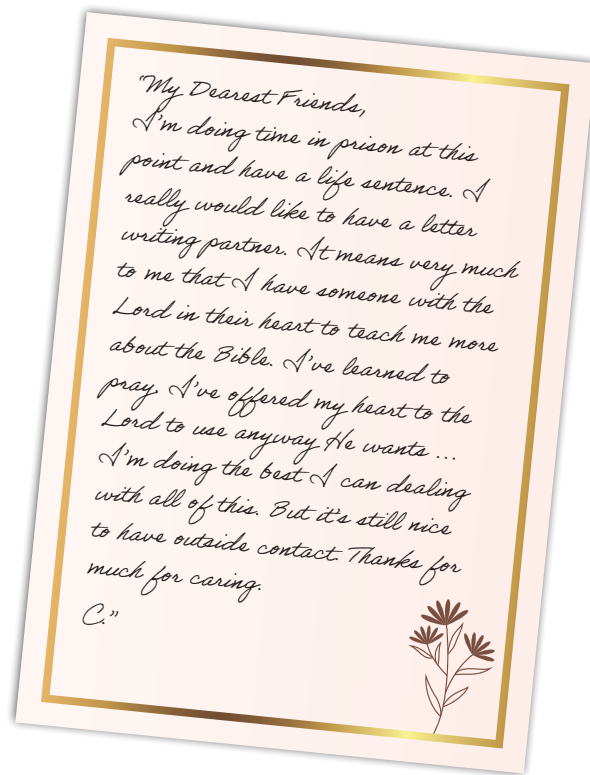 “My Dearest Friends,
I’m doing time in prison at this
point and have a life sentence. I
really would like to have a letter
writing partner. It means very much
to me that I have someone with the
Lord in their heart to teach me more
about the Bible. I’ve learned to
pray. I’ve offered my heart to the
Lord to use anyway He wants ...
I’m doing the best I can dealing
with all of this. But it’s still nice
to have outside contact. Thanks for
much for caring.
C.”